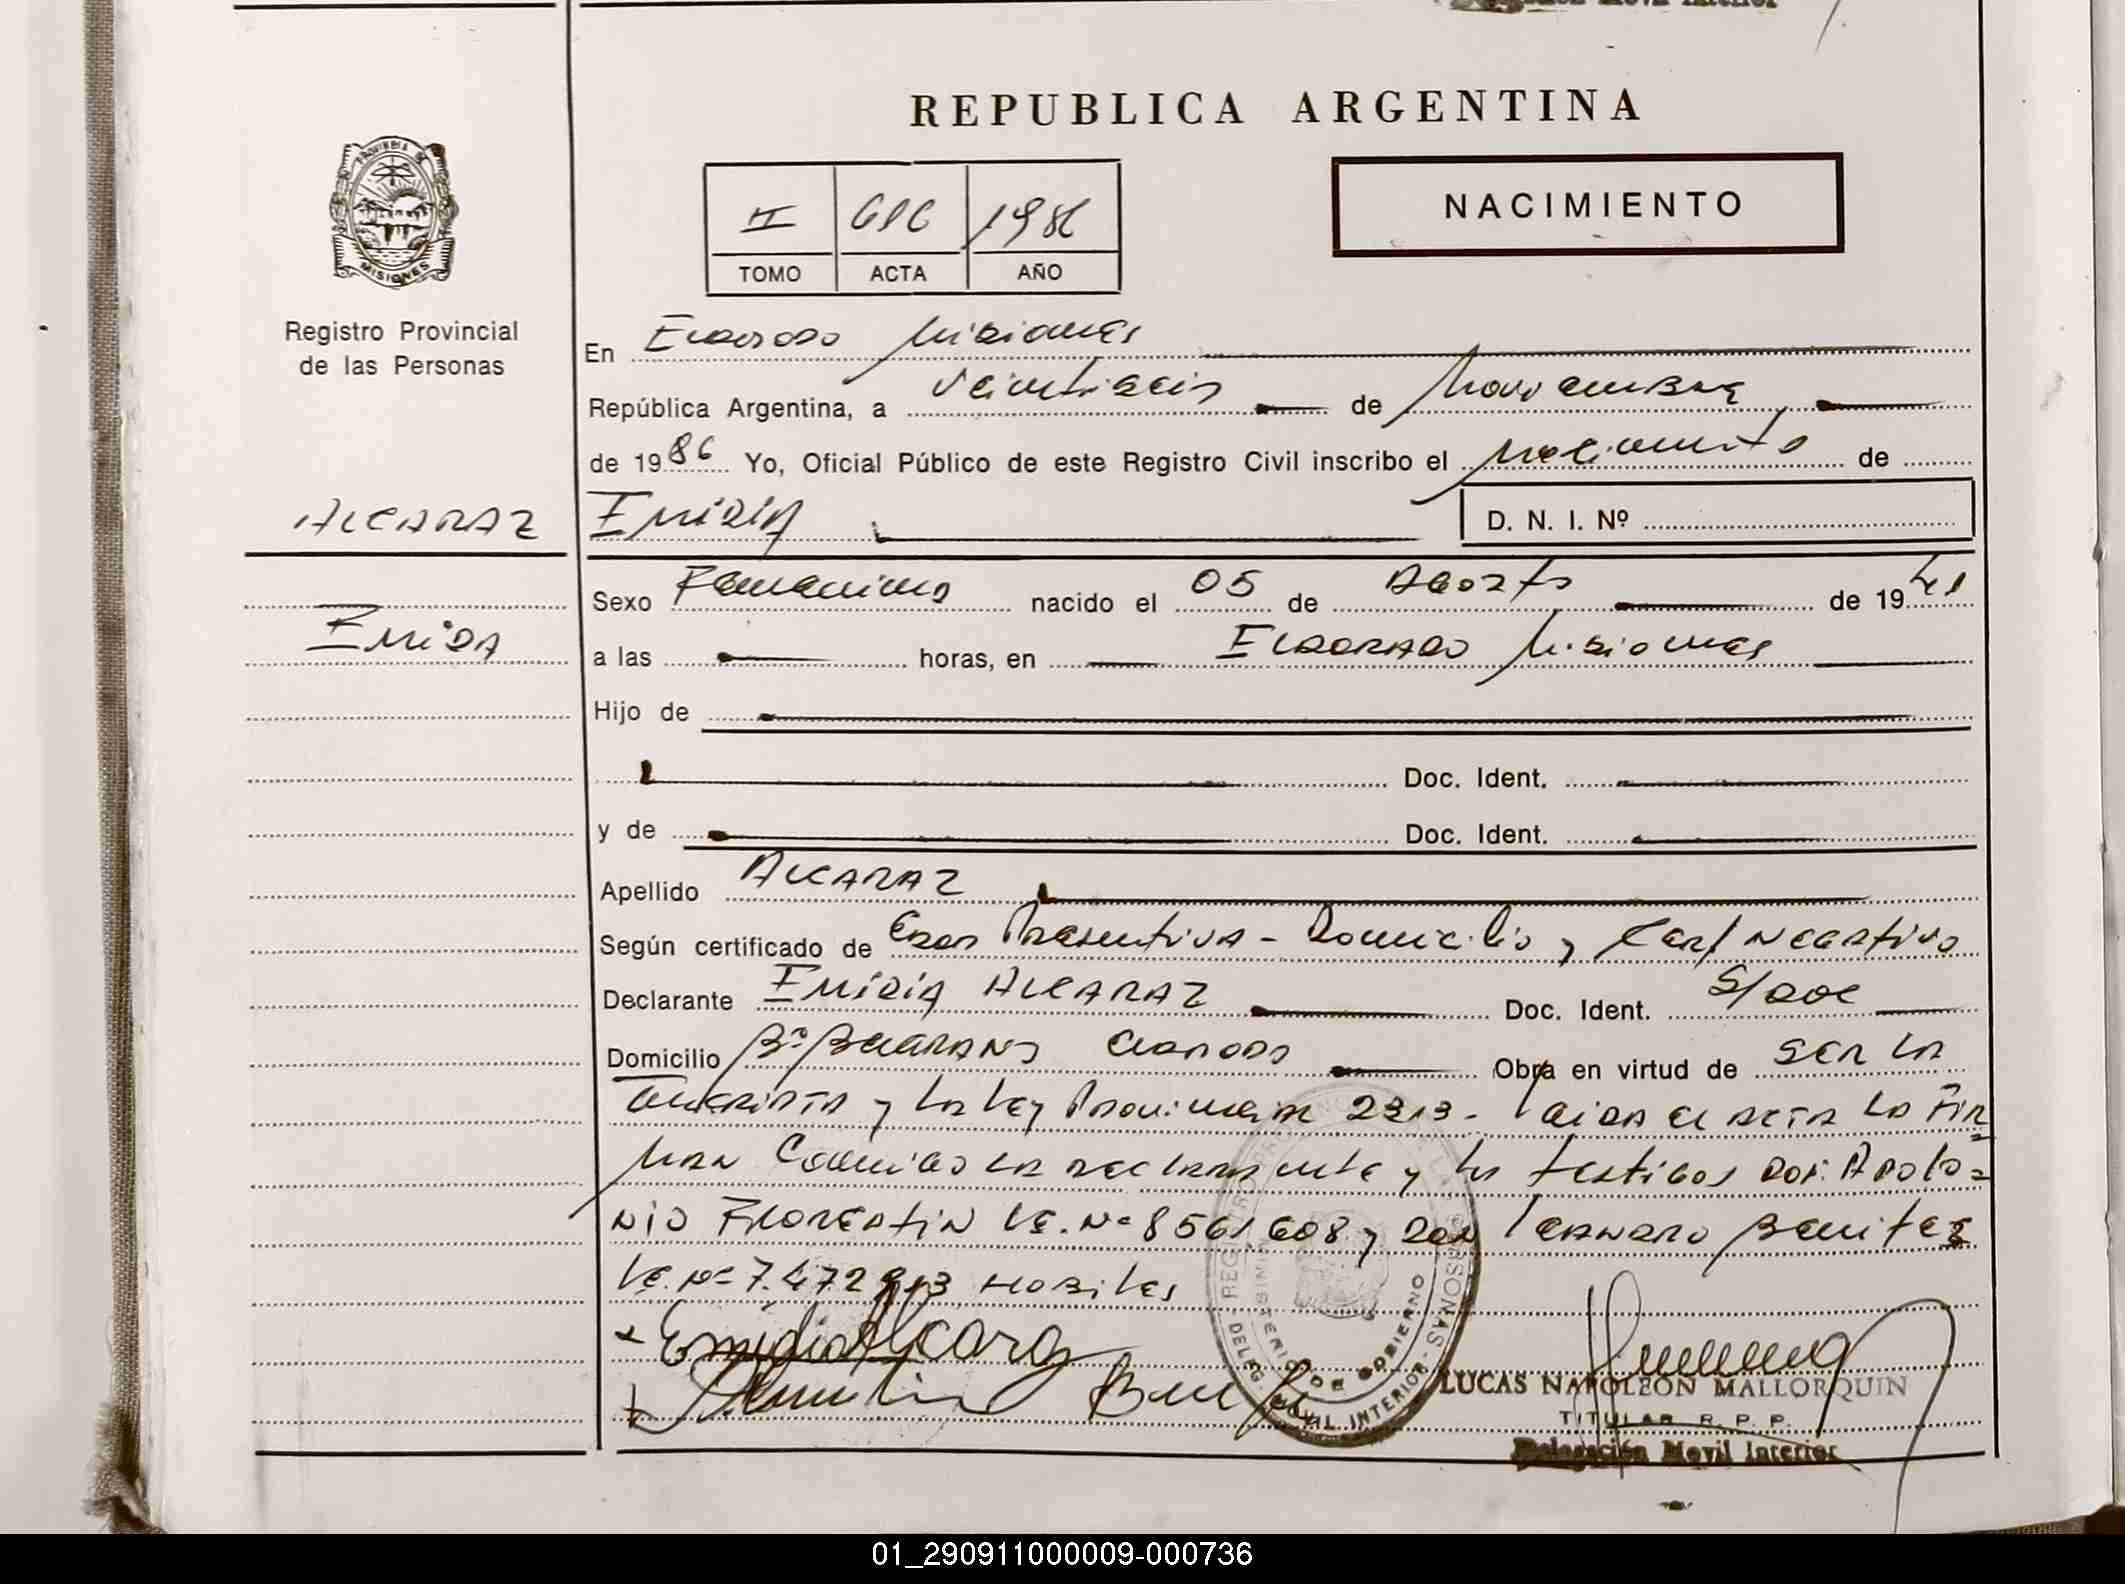 Delegación Movil Interior
REPUBLICA ARGENTINA
PROVINCIA DE
MISIONES
II 616 1986
TOMO ACTA AÑO
NACIMIENTO
Registro Provincial
de las Personas
En Eldorado Misiones
República Argentina, a veintiseis de Noviembre
de 1986 Yo, Oficial Público de este Registro Civil inscribo el Nacimiento de
ALCARAZ
EMIDIA
D. N. I. Nº
Sexo Femenino nacido el 05 de Agosto de 1941
EMIDIA
a las horas, en ELDORADO Misiones
Hijo de
Doc. Ident.
y de Doc. Ident.
Apellido ALCARAZ
Según certificado de Edad Presuntiva - Domicilio y Cert Negativo
Declarante EMIDIA ALCARAZ Doc. Ident. S/doc
Domicilio Bº BELGRANO Eldorado Obra en virtud de SER LA
y la Ley Provincial 2313 - Leida el ACTA la FIR
MAN Conmigo la declarante y los testigos Don: Apolo=
NIO FLORENTIN LE.Nº 8561608 y Don LEANDRO Benitez
LE.Nº 7.472.913 HABILES
Emidia Alcaraz
REGISTRO PROVINCIAL DE LAS PERSONAS
MINISTERIO DE GOBIERNO
DELEG MOVIL INTERIOR
LUCAS NAPOLEON MALLORQUIN
TITULAR R. P. P.
Delegación Movil Interior
01_290911000009-000736